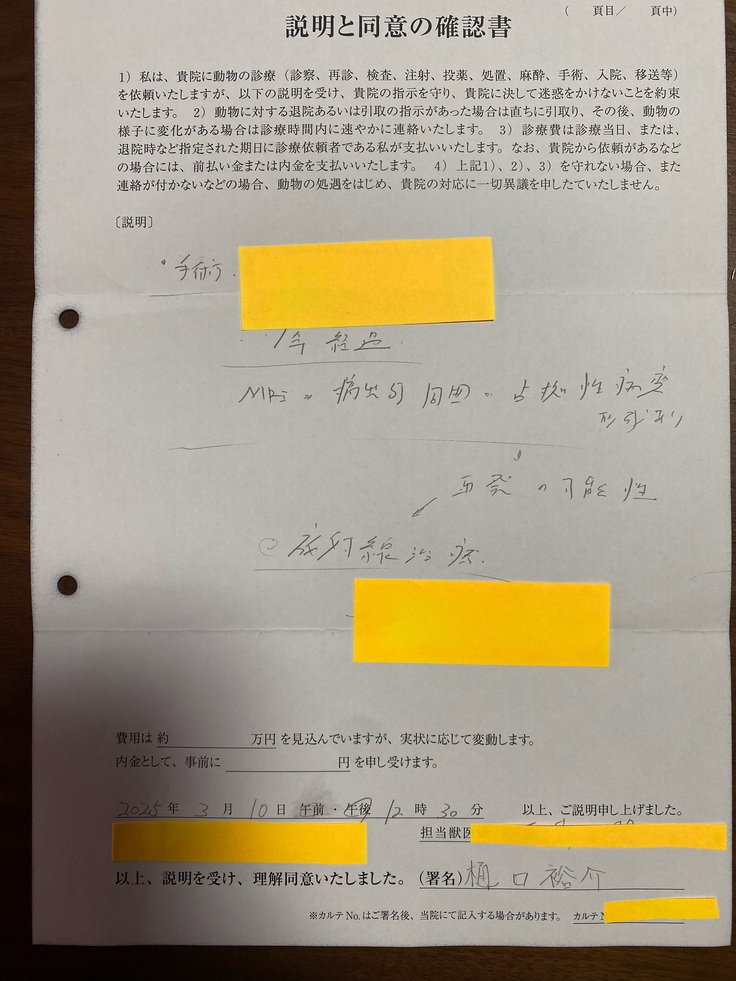 （　　頁目／　　頁中）
説明と同意の確認書
1）私は、貴院に動物の診療（診察、再診、検査、注射、投薬、処置、麻酔、手術、入院、移送等）
を依頼いたしますが、以下の説明を受け、貴院の指示を守り、貴院に決して迷惑をかけないことを約束
いたします。 2）動物に対する退院あるいは引取の指示があった場合は直ちに引取り、その後、動物の
様子に変化がある場合は診療時間内に速やかに連絡いたします。 3）診療費は診療当日、または、
退院時など指定された期日に診療依頼者である私が支払いいたします。なお、貴院から依頼があるなど
の場合には、前払い金または内金を支払いいたします。 4）上記1）、2）、3）を守れない場合、また
連絡が付かないなどの場合、動物の処遇をはじめ、貴院の対応に一切異議を申したていたしません。
〔説明〕
手術
経過
MRI 摘出部 周囲 占拠性病変
形成あり
再発の可能性
放射線治療
費用は 約　　　万円 を見込んでいますが、実状に応じて変動します。
内金として、事前に　　　円 を申し受けます。
2025 年 3 月 10 日 午前・午後 12 時 30 分 以上、ご説明申し上げました。
担当獣医
以上、説明を受け、理解同意いたしました。（署名）樋口裕介
※カルテ No. はご署名後、当院にて記入する場合があります。 カルテ